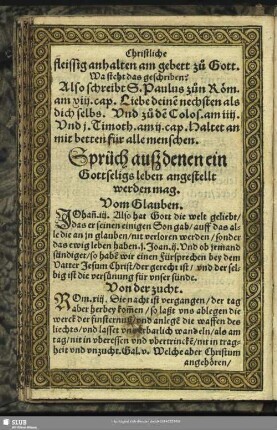 Christliche
fleissig anhalten am gebett zů Gott.
Wa steht das geschriben?
Also schreibt S. Paulus zůn Röm.
am xiij. cap. Liebe deinē nechsten als
dich selbs. Vnd zů dē Colos. am iiij.
Vnd j. Timoth. am ij. cap. Haltet an
mit betten für alle menschen.
Sprüch auß denen ein
Gottseligs leben angestellt
werden mag.
Vom Glauben.
IOhañ. iij. Also hat Gott die welt geliebt/
Das er seinen einigen Son gab/ auff das al-
le die an jn glauben/ nit verloren werden/ sonder
das ewig leben haben. j. Joan. ij. Vnd ob yemand
sündiget/ so habē wir einen Fürsprechen bey dem
Vatter Jesum Christ/ der gerecht ist/ vnd der sel-
big ist die versünung für vnser sünde.
Von der zucht.
ROm. xiij. Die nacht ist vergangen/ der tag
aber herbey kom̃en/ so laßt vns ablegen die
werck der finsternuß/ vnd anlegē die waffen des
liechts/ vnd lasset vns erbarlich wandeln/ als am
tag/ nit in vberessen vnd vbertrinckē/ nit in trag-
heit vnd vnzucht. Gal. v. Welche aber Christum
angehören/
SLUB